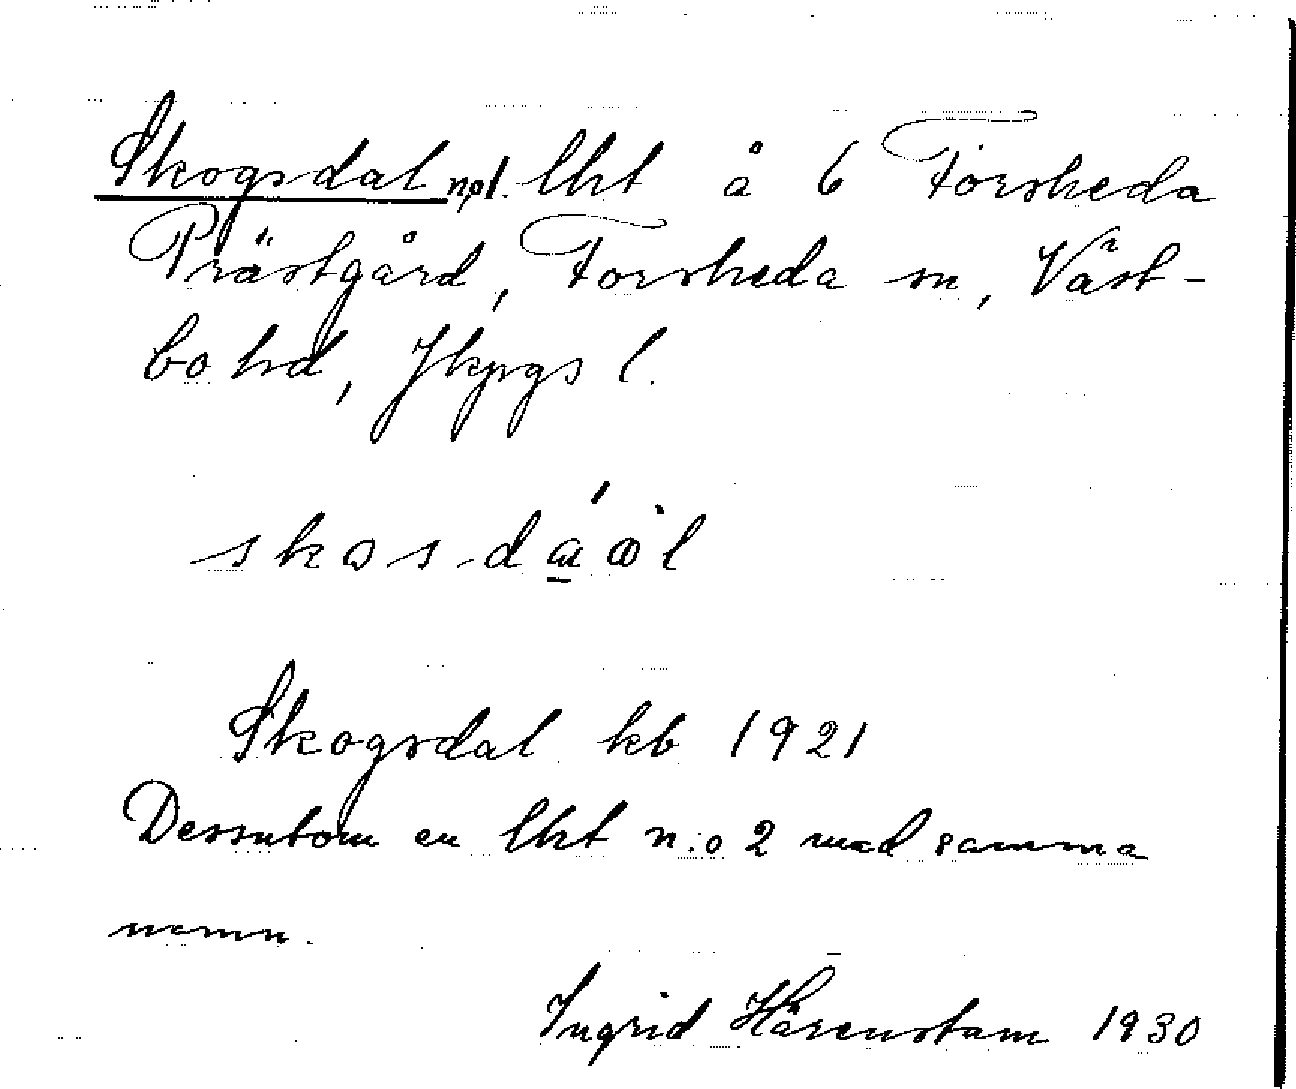 Skogsdal npl. lht å 6 Forsheda
Prästgård, Forsheda sn, Väst-
bo hd, Jkpgs l.
Skogsdal kb 1921
Dessutom en lht n:o 2 med samma
namn.
Ingrid Härenstam 1930